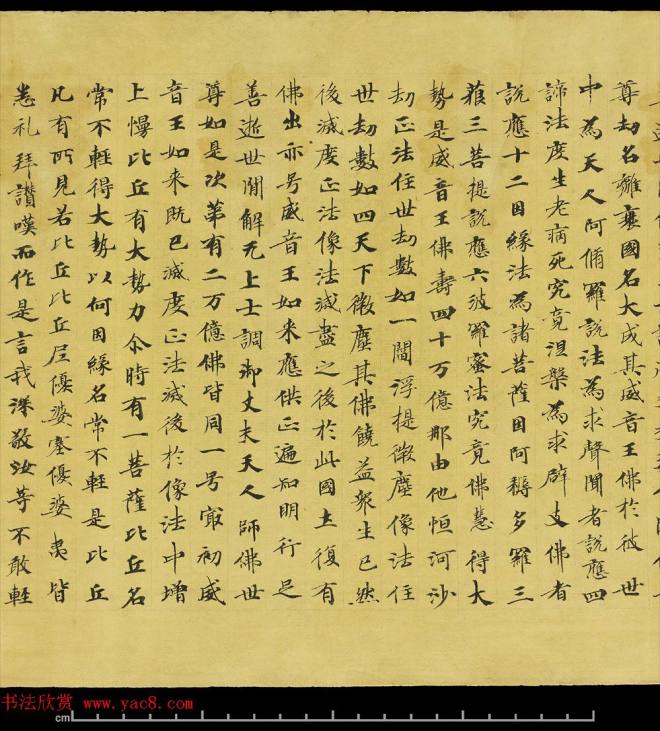 尊劫名離衰國名大成其威音王佛於彼世
中為天人阿脩羅說法為求聲聞者說應四
諦法度生老病死究竟涅槃為求辟支佛者
說應十二因緣法為諸菩薩因阿耨多羅三
藐三菩提說應六波羅蜜法究竟佛慧得大
勢是威音王佛壽四十万億那由他恒河沙
劫正法住世劫數如一閻浮提微塵像法住
世劫數如四天下微塵其佛饒益眾生已然
後滅度正法像法滅盡之後於此國土復有
佛出亦号威音王如來應供正遍知明行足
善逝世間解无上士調御丈夫天人師佛世
尊如是次第有二万億佛皆同一号㝡初威
音王如來既已滅度正法滅後於像法中增
上慢比丘有大勢力尒時有一菩薩比丘名
常不輕得大勢以何因緣名常不輕是比丘
凡有所見若比丘比丘尼優婆塞優婆夷皆
悉礼拜讃嘆而作是言我深敬汝等不敢輕
书法欣赏 www.yac8.com
cm